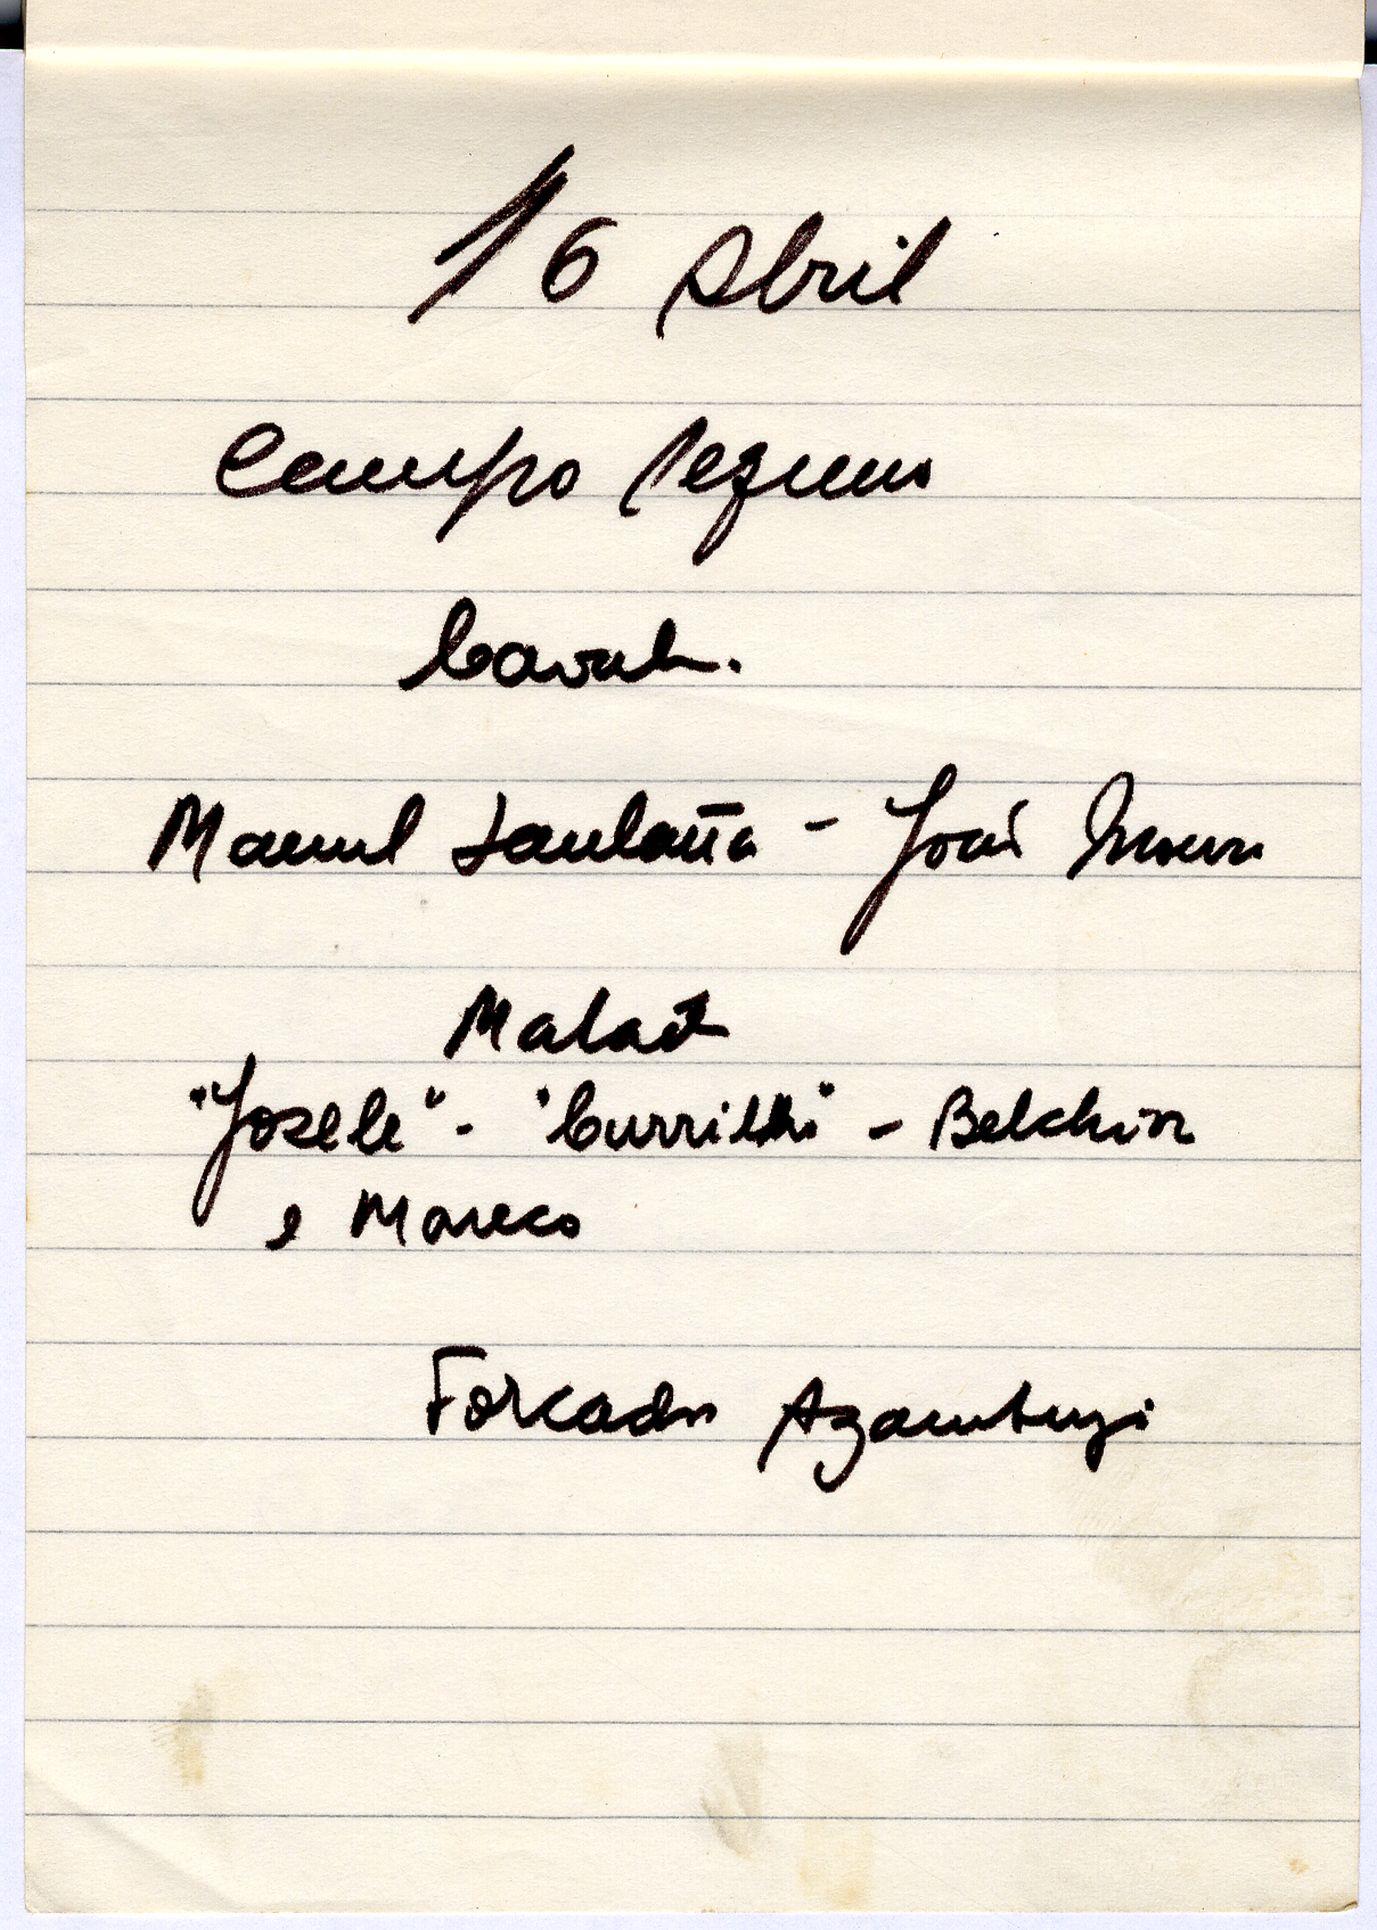 16 Abril
Campo Pequeno
Caval.
Manuel Santana - José Moura
Matad
"Josele" - "Currillo" - Belchior
e Mareco
Forcados Azambuja